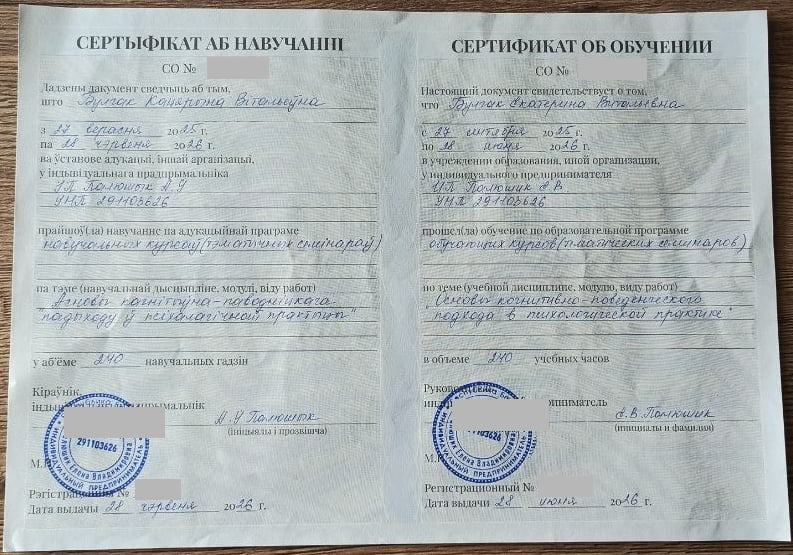 СЕРТЫФІКАТ АБ НАВУЧАННІ
СО №
Дадзены дакумент сведчыць аб тым,
што Булгак Кацярына Вітальеўна
з 27 верасня 2025 г.
па 28 чэрвеня 2026 г.
ва ўстанове адукацыі, іншай арганізацыі,
у індывідуальнага прадпрымальніка
ІП Палюшык А.У
УНП 291103626
прайшоў(ла) навучанне па адукацыйнай праграме
навучальных курсаў (тэматычных семінараў)
па тэме (навучальнай дысцыпліне, модулі, віду работ)
"Асновы кагнітыўна-паводніцкага
падыходу ў псіхалагічнай практыцы"
у аб'ёме 240 навучальных гадзін
Кіраўнік,
А.У Палюшык
(ініцыялы і прозвішча)
291103626
Елена Владимировна
ИНДИВИДУАЛЬНЫЙ ПРЕДПРИНИМАТЕЛЬ
Дата выдачы 28 чэрвеня 2026 г.
СЕРТИФИКАТ ОБ ОБУЧЕНИИ
СО №
Настоящий документ свидетельствует о том,
что Булгак Екатерина Витальевна
с 27 сентября 2025 г.
по 28 июня 2026 г.
в учреждении образования, иной организации,
у индивидуального предпринимателя
ИП Полюшик Е.В
УНП 291103626
прошел(ла) обучение по образовательной программе
обучающих курсов (тематических семинаров)
по теме (учебной дисциплине, модулю, виду работ)
"Основы когнитивно-поведенческого
подхода в психологической практике"
в объеме 240 учебных часов
Е.В. Полюшик
(инициалы и фамилия)
291103626
Елена Владимировна
ИНДИВИДУАЛЬНЫЙ ПРЕДПРИНИМАТЕЛЬ
Регистрационный №
Дата выдачи 28 июня 2026 г.